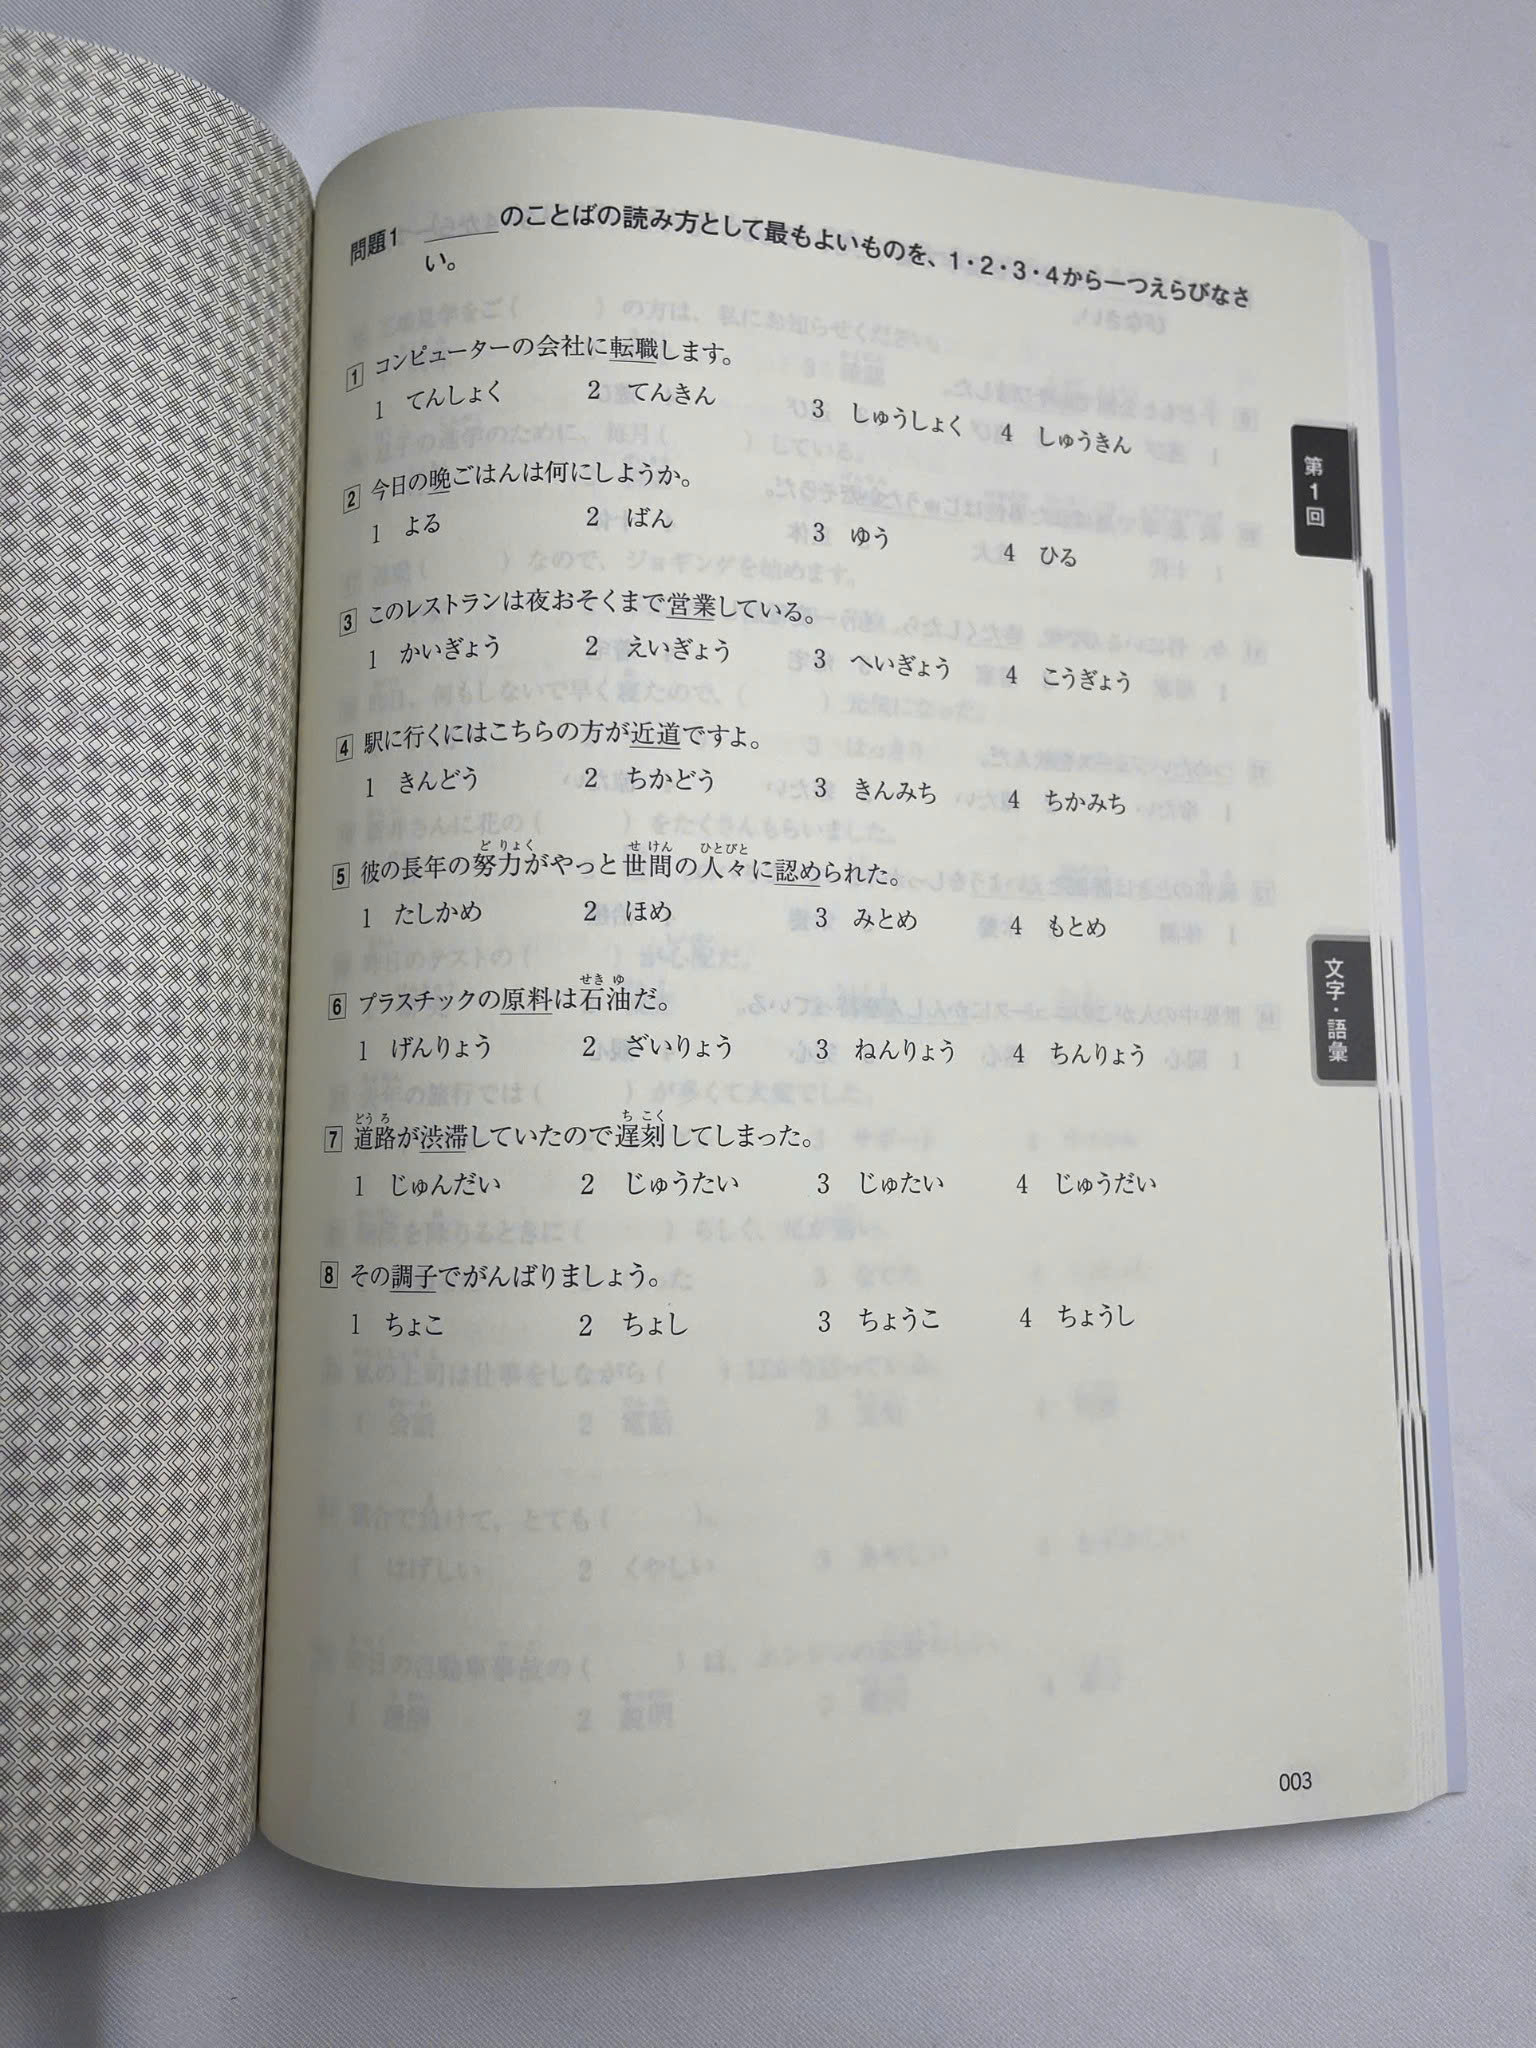 問題1 ＿＿＿のことばの読み方として最もよいものを、1・2・3・4から一つえらびなさ
い。
1 コンピューターの会社に転職します。
1 てんしょく 2 てんきん 3 しゅうしょく 4 しゅうきん
2 今日の晩ごはんは何にしようか。
1 よる 2 ばん 3 ゆう 4 ひる
3 このレストランは夜おそくまで営業している。
1 かいぎょう 2 えいぎょう 3 へいぎょう 4 こうぎょう
4 駅に行くにはこちらの方が近道ですよ。
1 きんどう 2 ちかどう 3 きんみち 4 ちかみち
どりょく せけん ひとびと
5 彼の長年の努力がやっと世間の人々に認められた。
1 たしかめ 2 ほめ 3 みとめ 4 もとめ
せきゆ
6 プラスチックの原料は石油だ。
1 げんりょう 2 ざいりょう 3 ねんりょう 4 ちんりょう
どうろ ちこく
7 道路が渋滞していたので遅刻してしまった。
1 じゅんだい 2 じゅうたい 3 じゅたい 4 じゅうだい
8 その調子でがんばりましょう。
1 ちょこ 2 ちょし 3 ちょうこ 4 ちょうし
第1回
文字・語彙
003